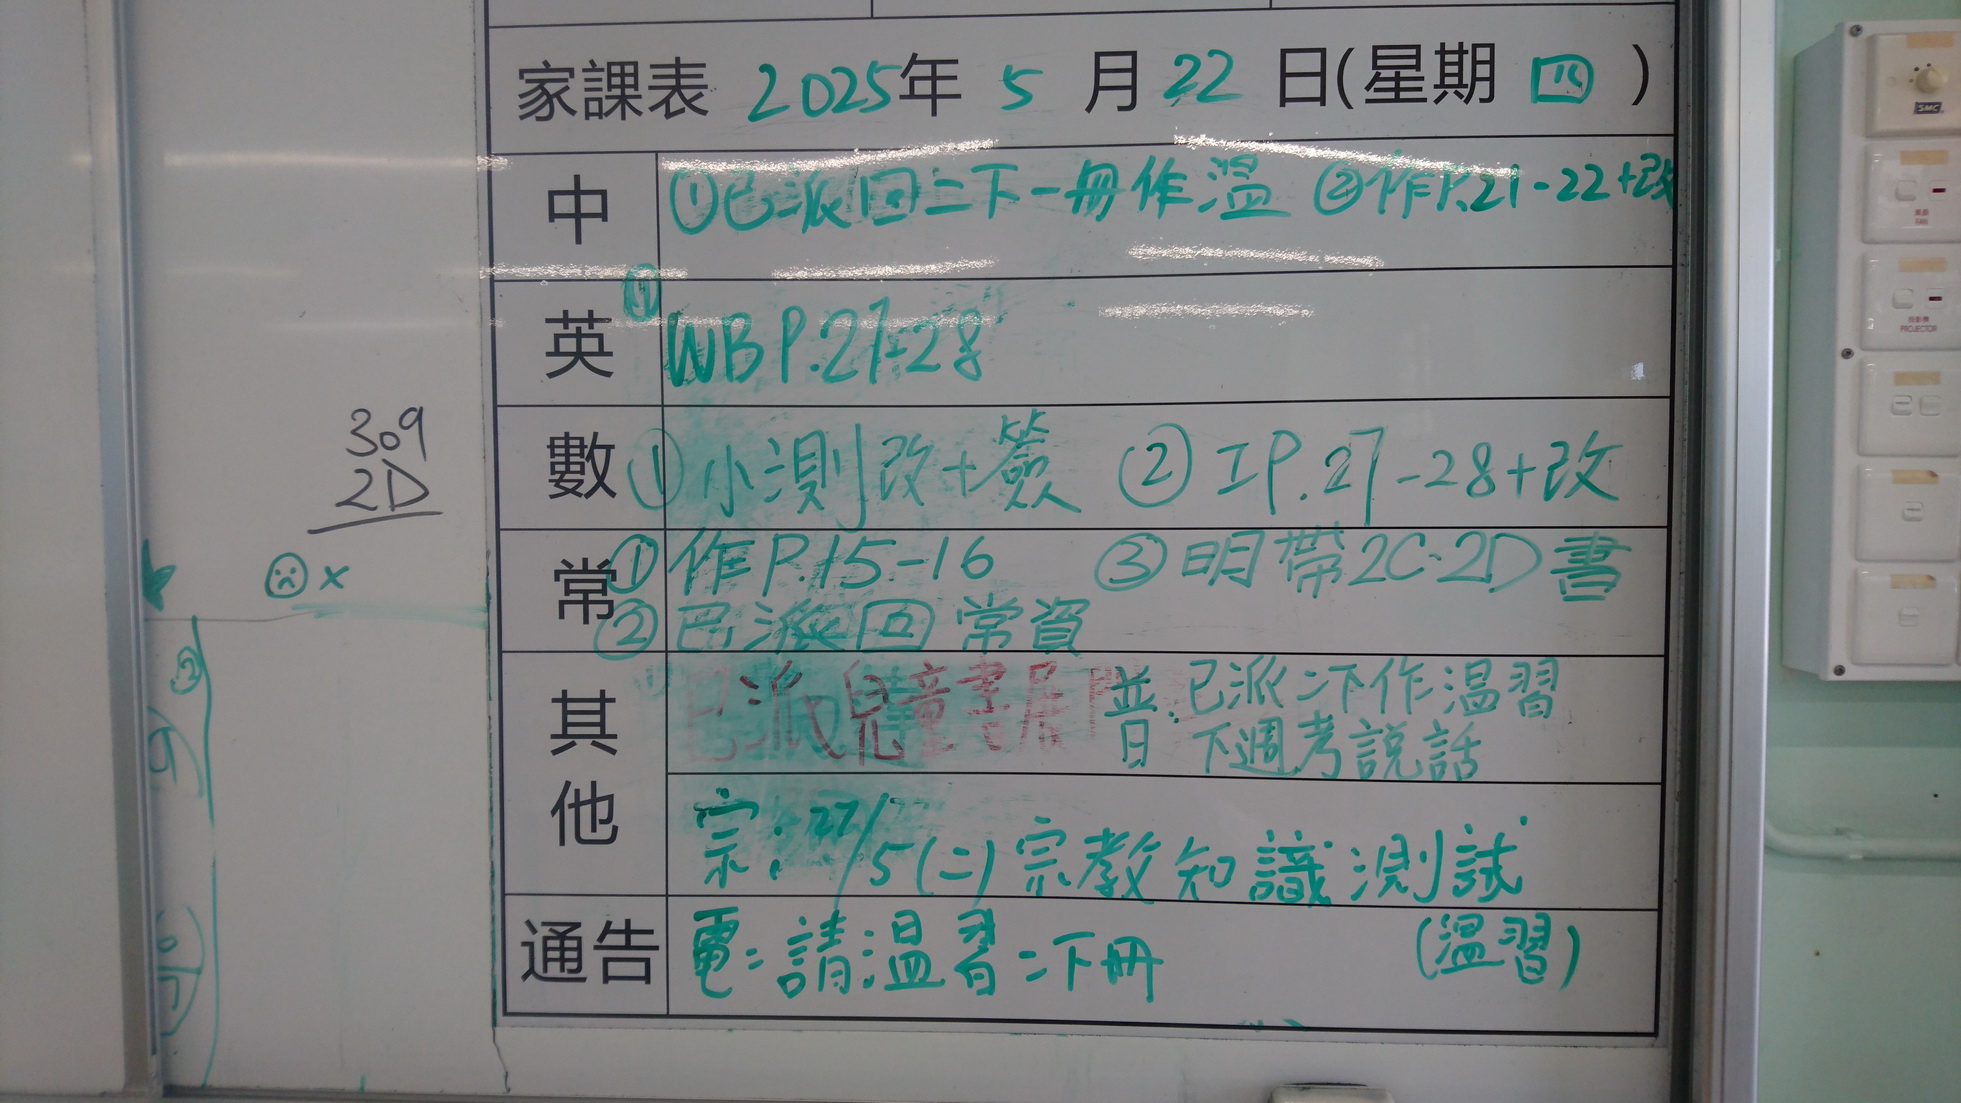 家課表 2025年 5 月 22 日(星期 四 )
中 ①已派回二下一冊作溫 ②作P.21-22+改
英 ① WB P.27-28
數 ①小測改+簽 ②工P.27-28+改
常 ①作P.15-16 ③明帶2C.2D書
②已派回常資
其他
已派兒童書展
普: 已派二下作溫習
下週考說話
宗: 27/5(二)宗教知識測試
(溫習)
通告 電:請溫習二下冊
309
2D
x
②
SMC
風扇
FAN
投影機
PROJECTOR